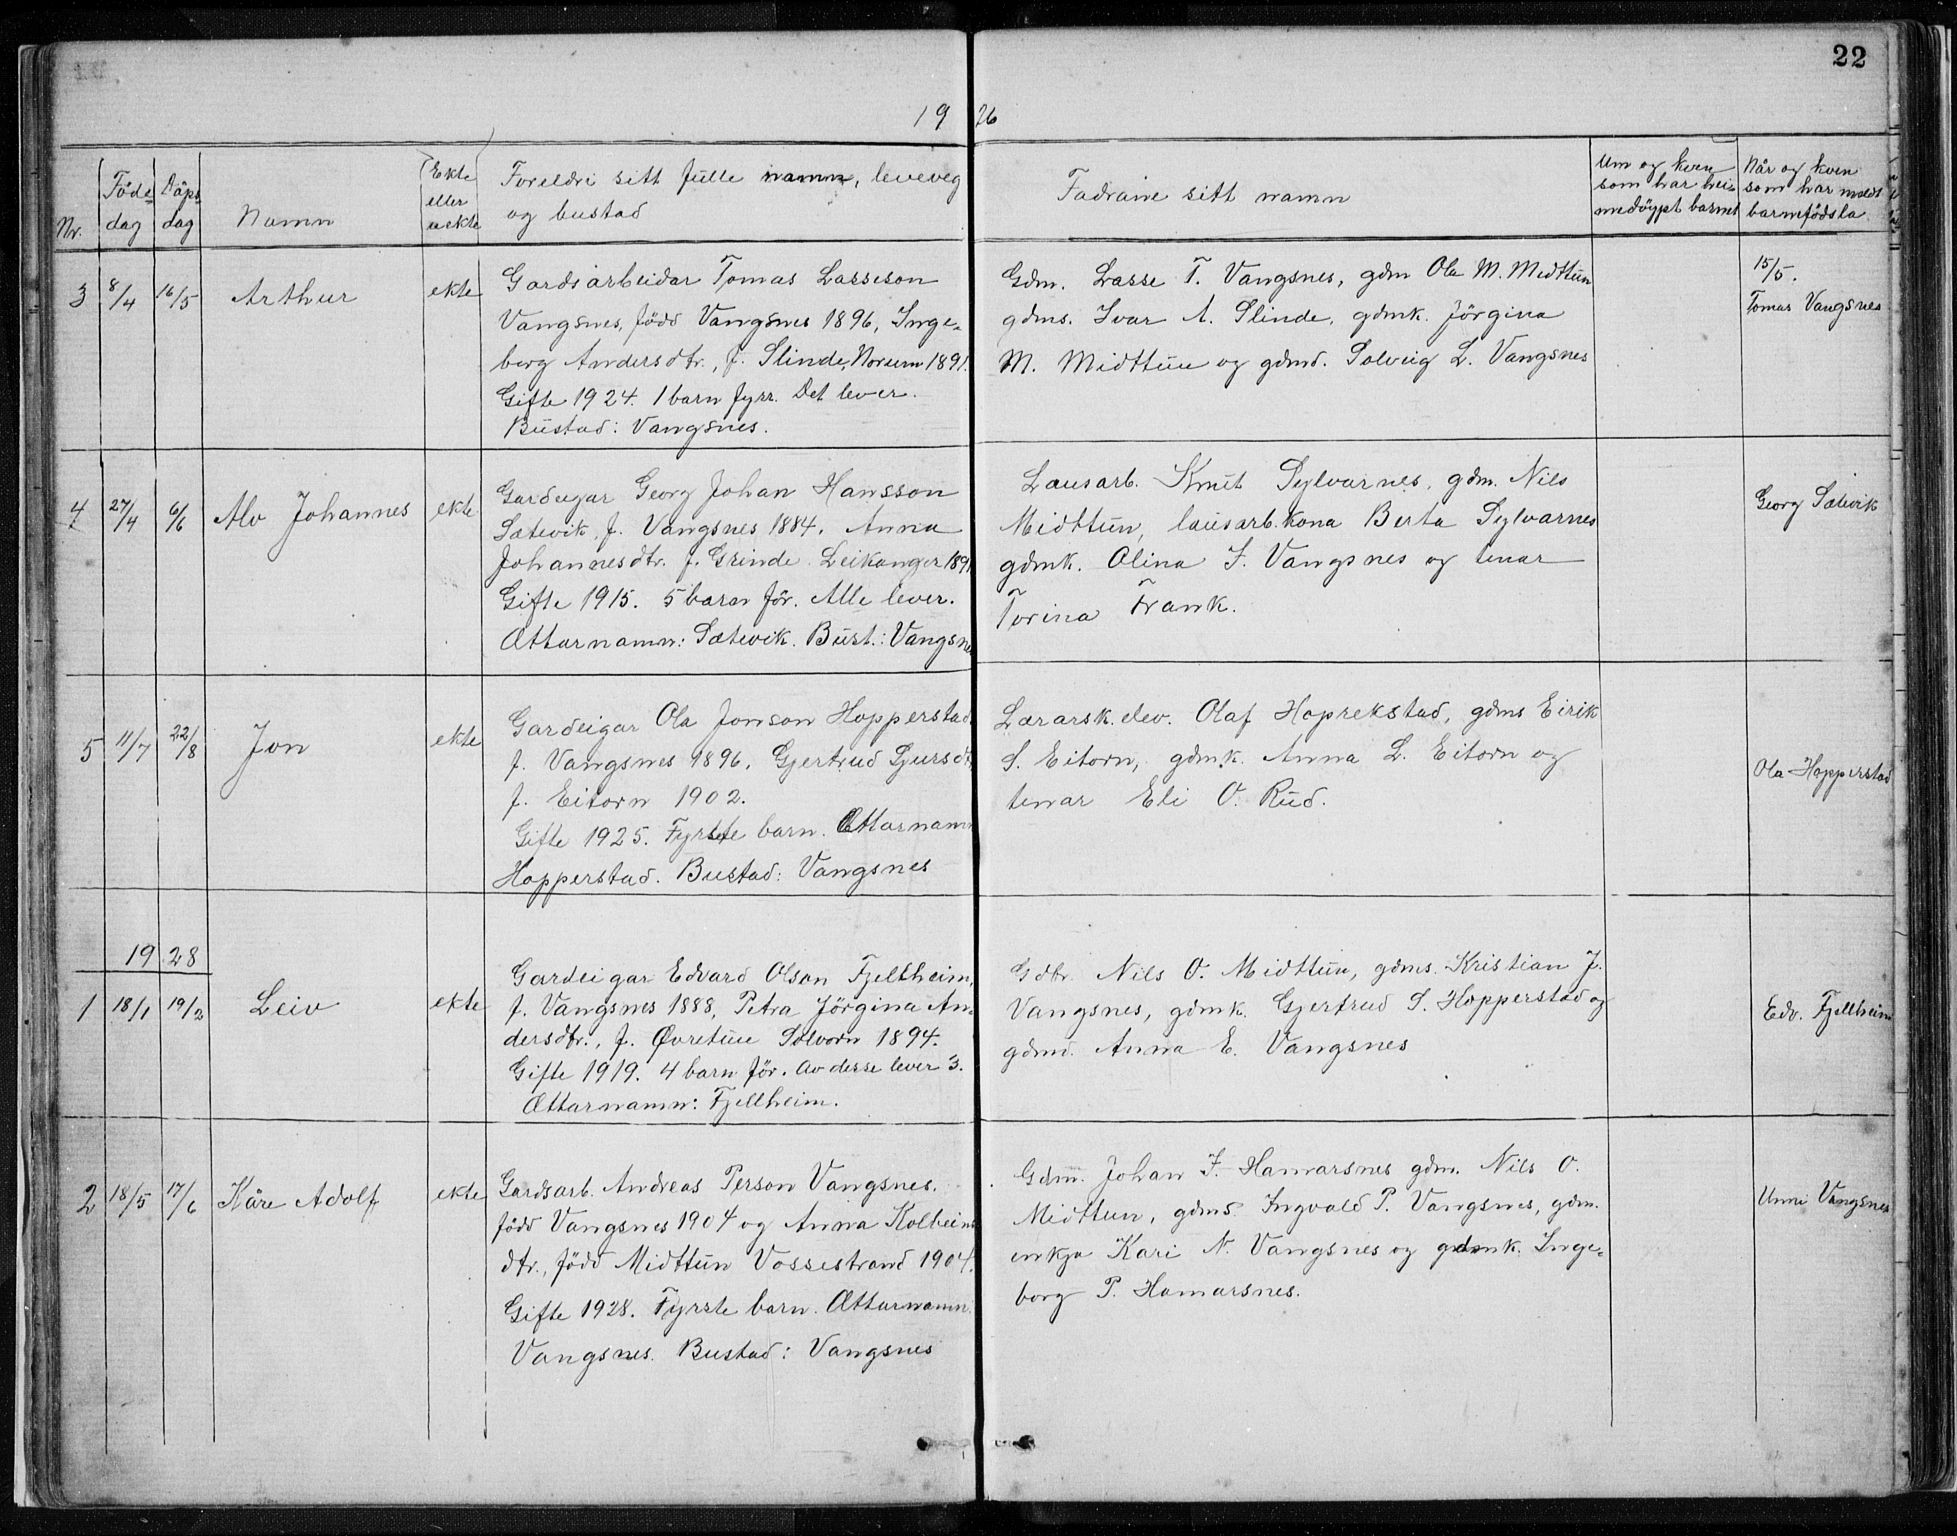 22
19 26
Nr.
Föde-
dag
Dåps
dag
Namn
Ekte
eller
uekte
Foreldri sitt fulle namn, leveveg
og bustad
Fadrane sitt namn
Um og kven
som har hei-
medöypt barnet
Når og kven
som har meldt
barnefödsla
3 8/4 16/5 Arthur ekte
Gardsarbeidar Tomas Lasseson
Vangsnes, född Vangsnes 1896, Inge-
borg Andersdtr., f. Slinde, Norum 1891.
Gifte 1924. 1 barn fyrr. Det lever.
Bustad: Vangsnes.
Gdm. Lasse T. Vangsnes, gdm Ola M. Midttun
gdms. Ivar A. Slinde, gdmk. Jörgina
M. Midttun og gdmd. Solveig L. Vangsnes
15/5.
Tomas Vangsnes
4 27/4 6/6 Alv Johannes ekte
Gardeigar Georg Johan Hansson
Sætevik, f. Vangsnes 1884, Anna
Johannesdtr. f. Grinde Leikanger 1891
Gifte 1915. 5 barn för. Alle lever.
Ættarnamn: Sætevik. Bust.: Vangsnes
Lausarb. Knut Sylvarnes, gdm. Nils
Midttun, lausarb.kona Berta Sylvarnes
gdmk. Olina J. Vangsnes og tenar
Torina Frank.
Georg Sætevik
5 11/7 22/8 Jon ekte
Gardeigar Ola Jonson Hopperstad,
f. Vangsnes 1896, Gjertrud Sjursdt.
f. Eitorn 1902.
Gifte 1925. Fyrste barn. Ættarnamn
Hopperstad. Bustad: Vangsnes
Lærarsk.elev. Olaf Hoprekstad, gdms Eirik
S. Eitorn, gdmk. Anna L. Eitorn og
tenar Eli O. Rud.
Ola Hopperstad
19 28
1 18/1 19/2 Leiv ekte
Gardeigar Edvard Olson Fjellheim,
f. Vangsnes 1888, Petra Jörgina An-
dersdtr., f. Øvretun Solvorn 1894.
Gifte 1919. 4 barn för. Av desse lever 3.
Ættarnamn: Fjellheim.
Gdbr. Nils O. Midttun, gdms. Kristian J.
Vangsnes, gdmk. Gjertrud S. Hopperstad og
gdmd. Anna E. Vangsnes
Edv. Fjellheim
2 18/5 17/6 Kåre Adolf ekte
Gardsarb. Andreas Person Vangsnes.
född Vangsnes 1904 og Anna Kolbeins
dtr., född Midttun Vossestrand 1904.
Gifte 1928. Fyrste barn. Ættarnamn
Vangsnes. Bustad: Vangsnes
Gdm. Johan J. Hamarsnes gdm. Nils O.
Midttun, gdms. Ingvald P. Vangsnes, gdm.
enkja Kari N. Vangsnes og gdmk. Inge-
borg P. Hamarsnes.
Unni Vangsnes